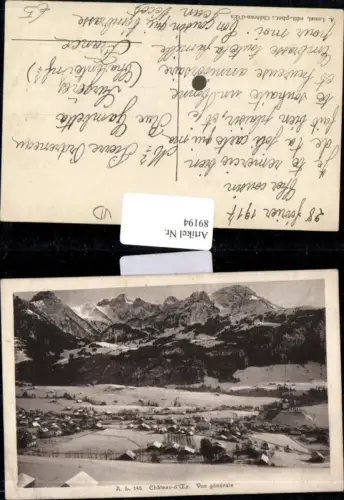 28 février 1917
Cher cousin
Je te remercie bien
de ta joli carte qui m'a
fait bien plaisir, et je
te souhaite une bonne
et heureuse anniversaire
Embrasse toute la famille
pour moi. Ton cousin qui t'embrasse
Jean
Mr Pierre
Rue Gambetta
France
A. Lenoir, édit.-phot., Château-d'Œx
VD
Artikel Nr.
89194
A. L. 141 Château-d'Œx. Vue générale